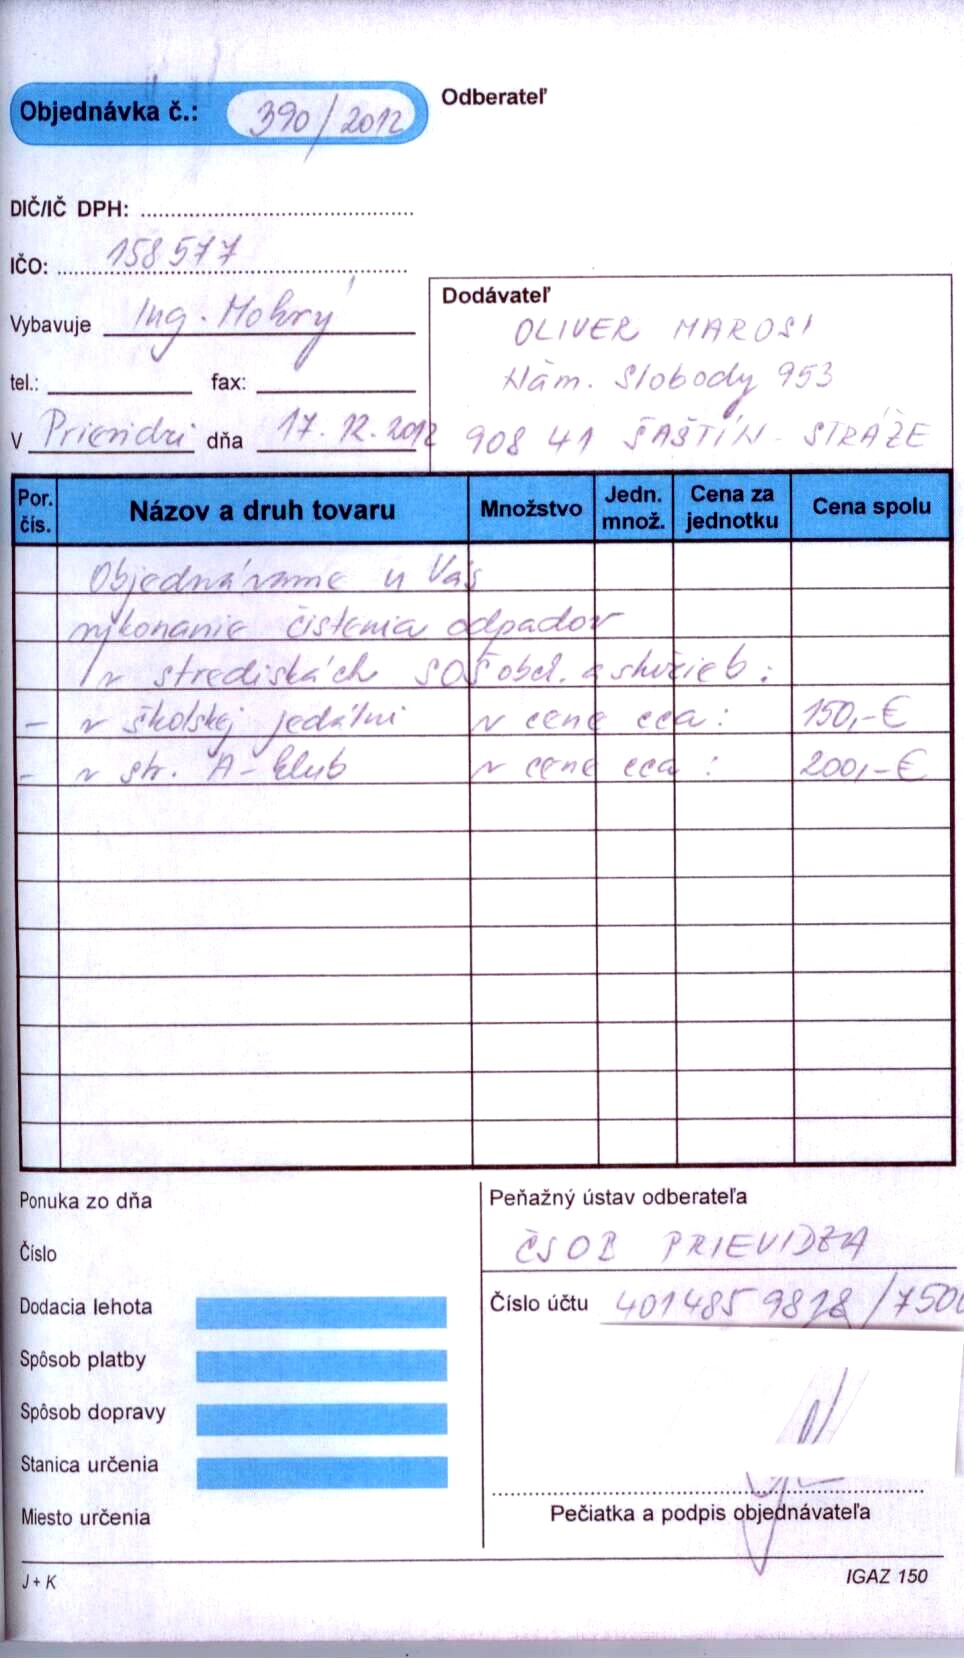 Objednávka č.: 390/2012
Odberateľ
DIČ/IČ DPH:
IČO: 158577
Vybavuje Ing. Mokrý
tel.: fax:
V Prievidzi dňa 17.12.2012
Dodávateľ
OLIVER MAROSI
Nám. Slobody 953
908 41 ŠAŠTÍN - STRÁŽE
Por. čís. Názov a druh tovaru Množstvo Jedn. množ. Cena za jednotku Cena spolu
Objednávame u Vás
vykonanie čistenia odpadov
v strediskách SOŠ obch. a služieb:
- v školskej jedálni v cene cca: 150,-€
- v str. A-klub v cene cca: 200,-€
Ponuka zo dňa
Číslo
Dodacia lehota
Spôsob platby
Spôsob dopravy
Stanica určenia
Miesto určenia
Peňažný ústav odberateľa
ČSOB PRIEVIDZA
Číslo účtu 4014859828/750
Pečiatka a podpis objednávateľa
J + K
IGAZ 150